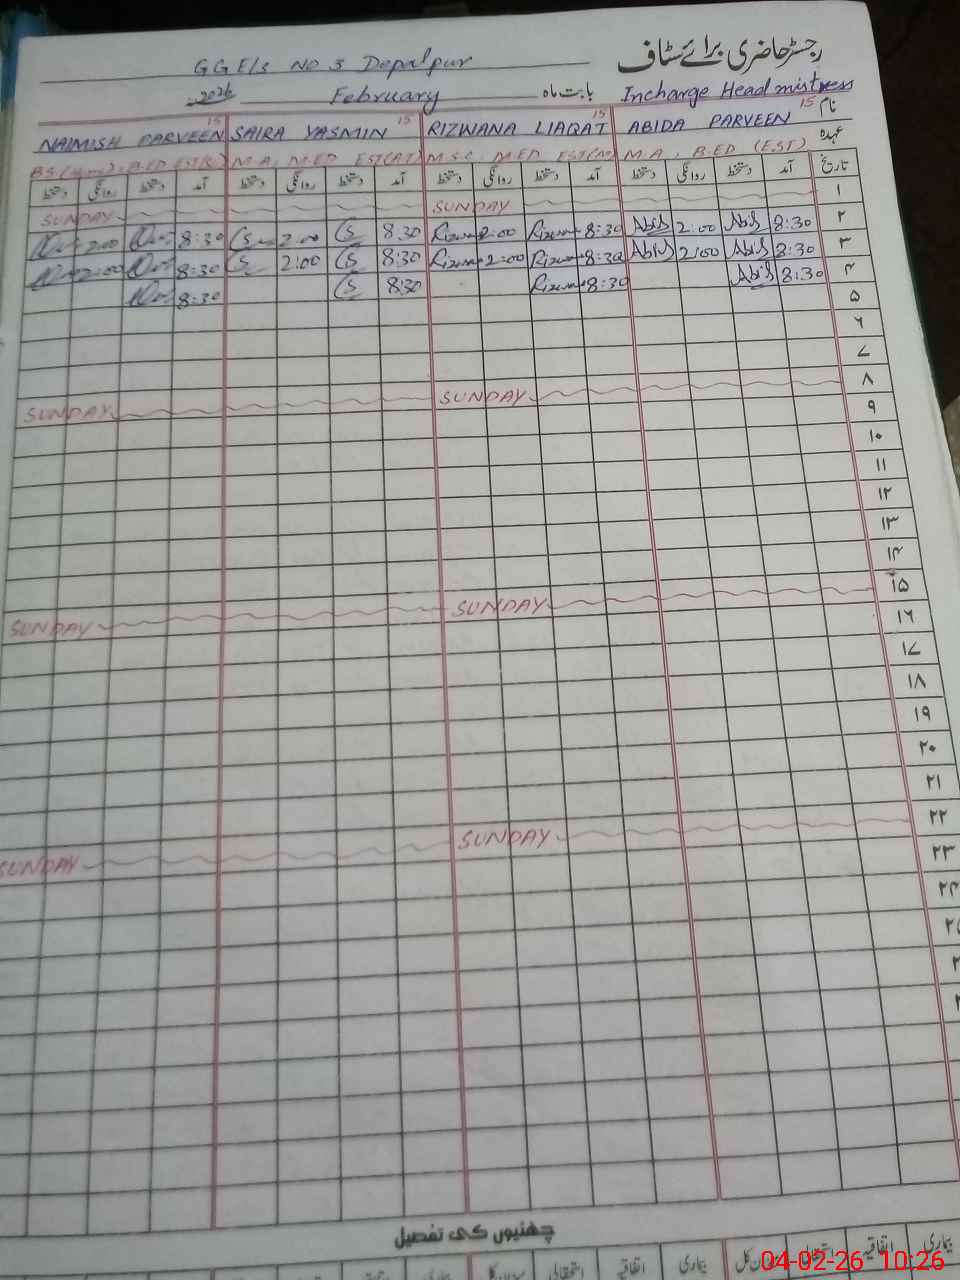 رجسٹر حاضری برائے سٹاف
GGE/S NO 3 Depalpur
2026 February بابت ماہ Incharge Headmistress
نام ABIDA PARVEEN 15 RIZWANA LIAQAT 15 SAIRA YASMIN 15 NAIMISH PARVEEN 15
عہدہ M.A, B.ED (EST) M.SC, M.ED EST(M) M.A, M.ED EST(AT) B.ED EST
تاریخ آمد دستخط روانگی دستخط آمد دستخط روانگی دستخط آمد دستخط روانگی دستخط آمد دستخط روانگی دستخط
۱ SUNDAY SUNDAY
۲ 8:30 Abid 2:00 Abid 8:30 Rizwana 2:00 Rizwana 8:30 2:00 8:30 2:00
۳ 8:30 Abid 2:00 Abid 8:30 Rizwana 2:00 Rizwana 8:30 2:00 8:30 2:00
۴ 8:30 Abid 8:30 Rizwana 8:30 8:30
۵
۶
۷
۸ SUNDAY SUNDAY
۹
۱۰
۱۱
۱۲
۱۳
۱۴
۱۵ SUNDAY SUNDAY
۱۶
۱۷
۱۸
۱۹
۲۰
۲۱
۲۲ SUNDAY SUNDAY
۲۳
۲۴
چھٹیوں کی تفصیل
بیماری اتفاقیہ استحقاقی بیماری اتفاقیہ استحقاقی
04-02-26 10:26